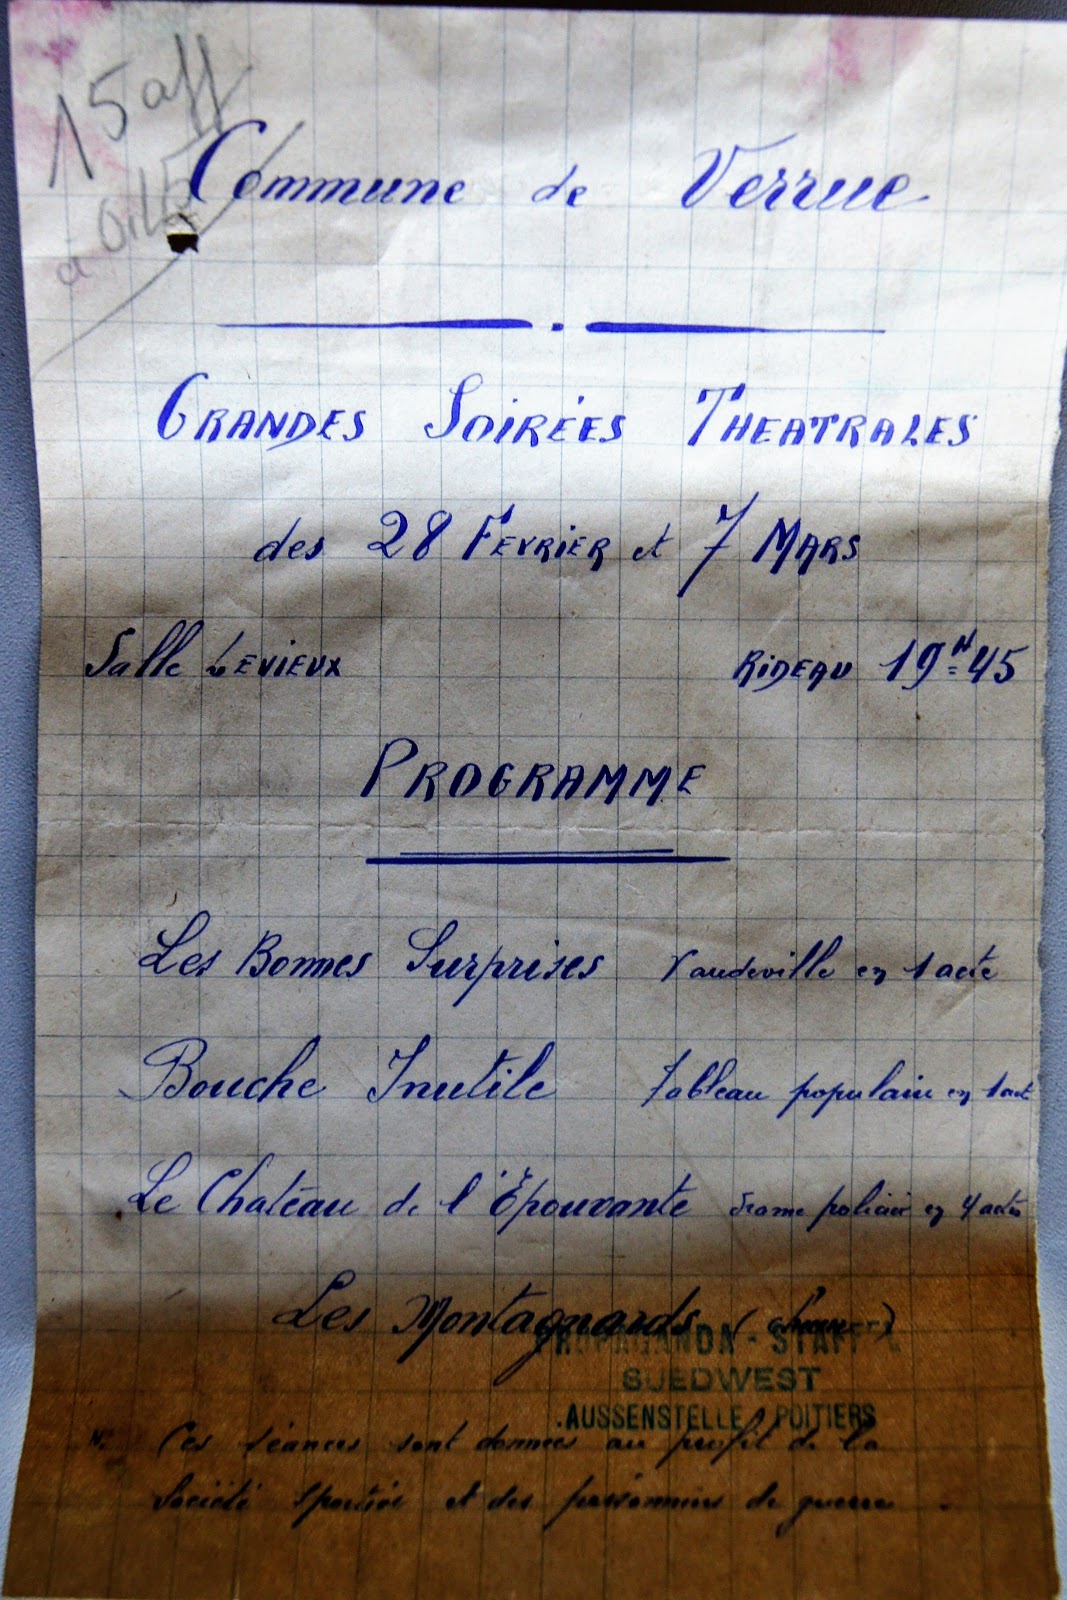 15 aff
à 0,15
Commune de Verrue
GRANDES SOIRÉES THEATRALES
des 28 FEVRIER et 7 MARS
Salle LEVIEUX RIDEAU 19H=45
PROGRAMME
Les Bonnes Surprises Vaudeville en 1 acte
Bouche Inutile Tableau populaire en 1 acte
Le Chatéau de l'Épouvante drame policier en 4 actes
Les Montagnards (chœur)
PROPAGANDA-STAFFEL
SUEDWEST
AUSSENSTELLE POITIERS
Ces séances sont données au profit de la
Société Sportive et des prisonniers de guerre.